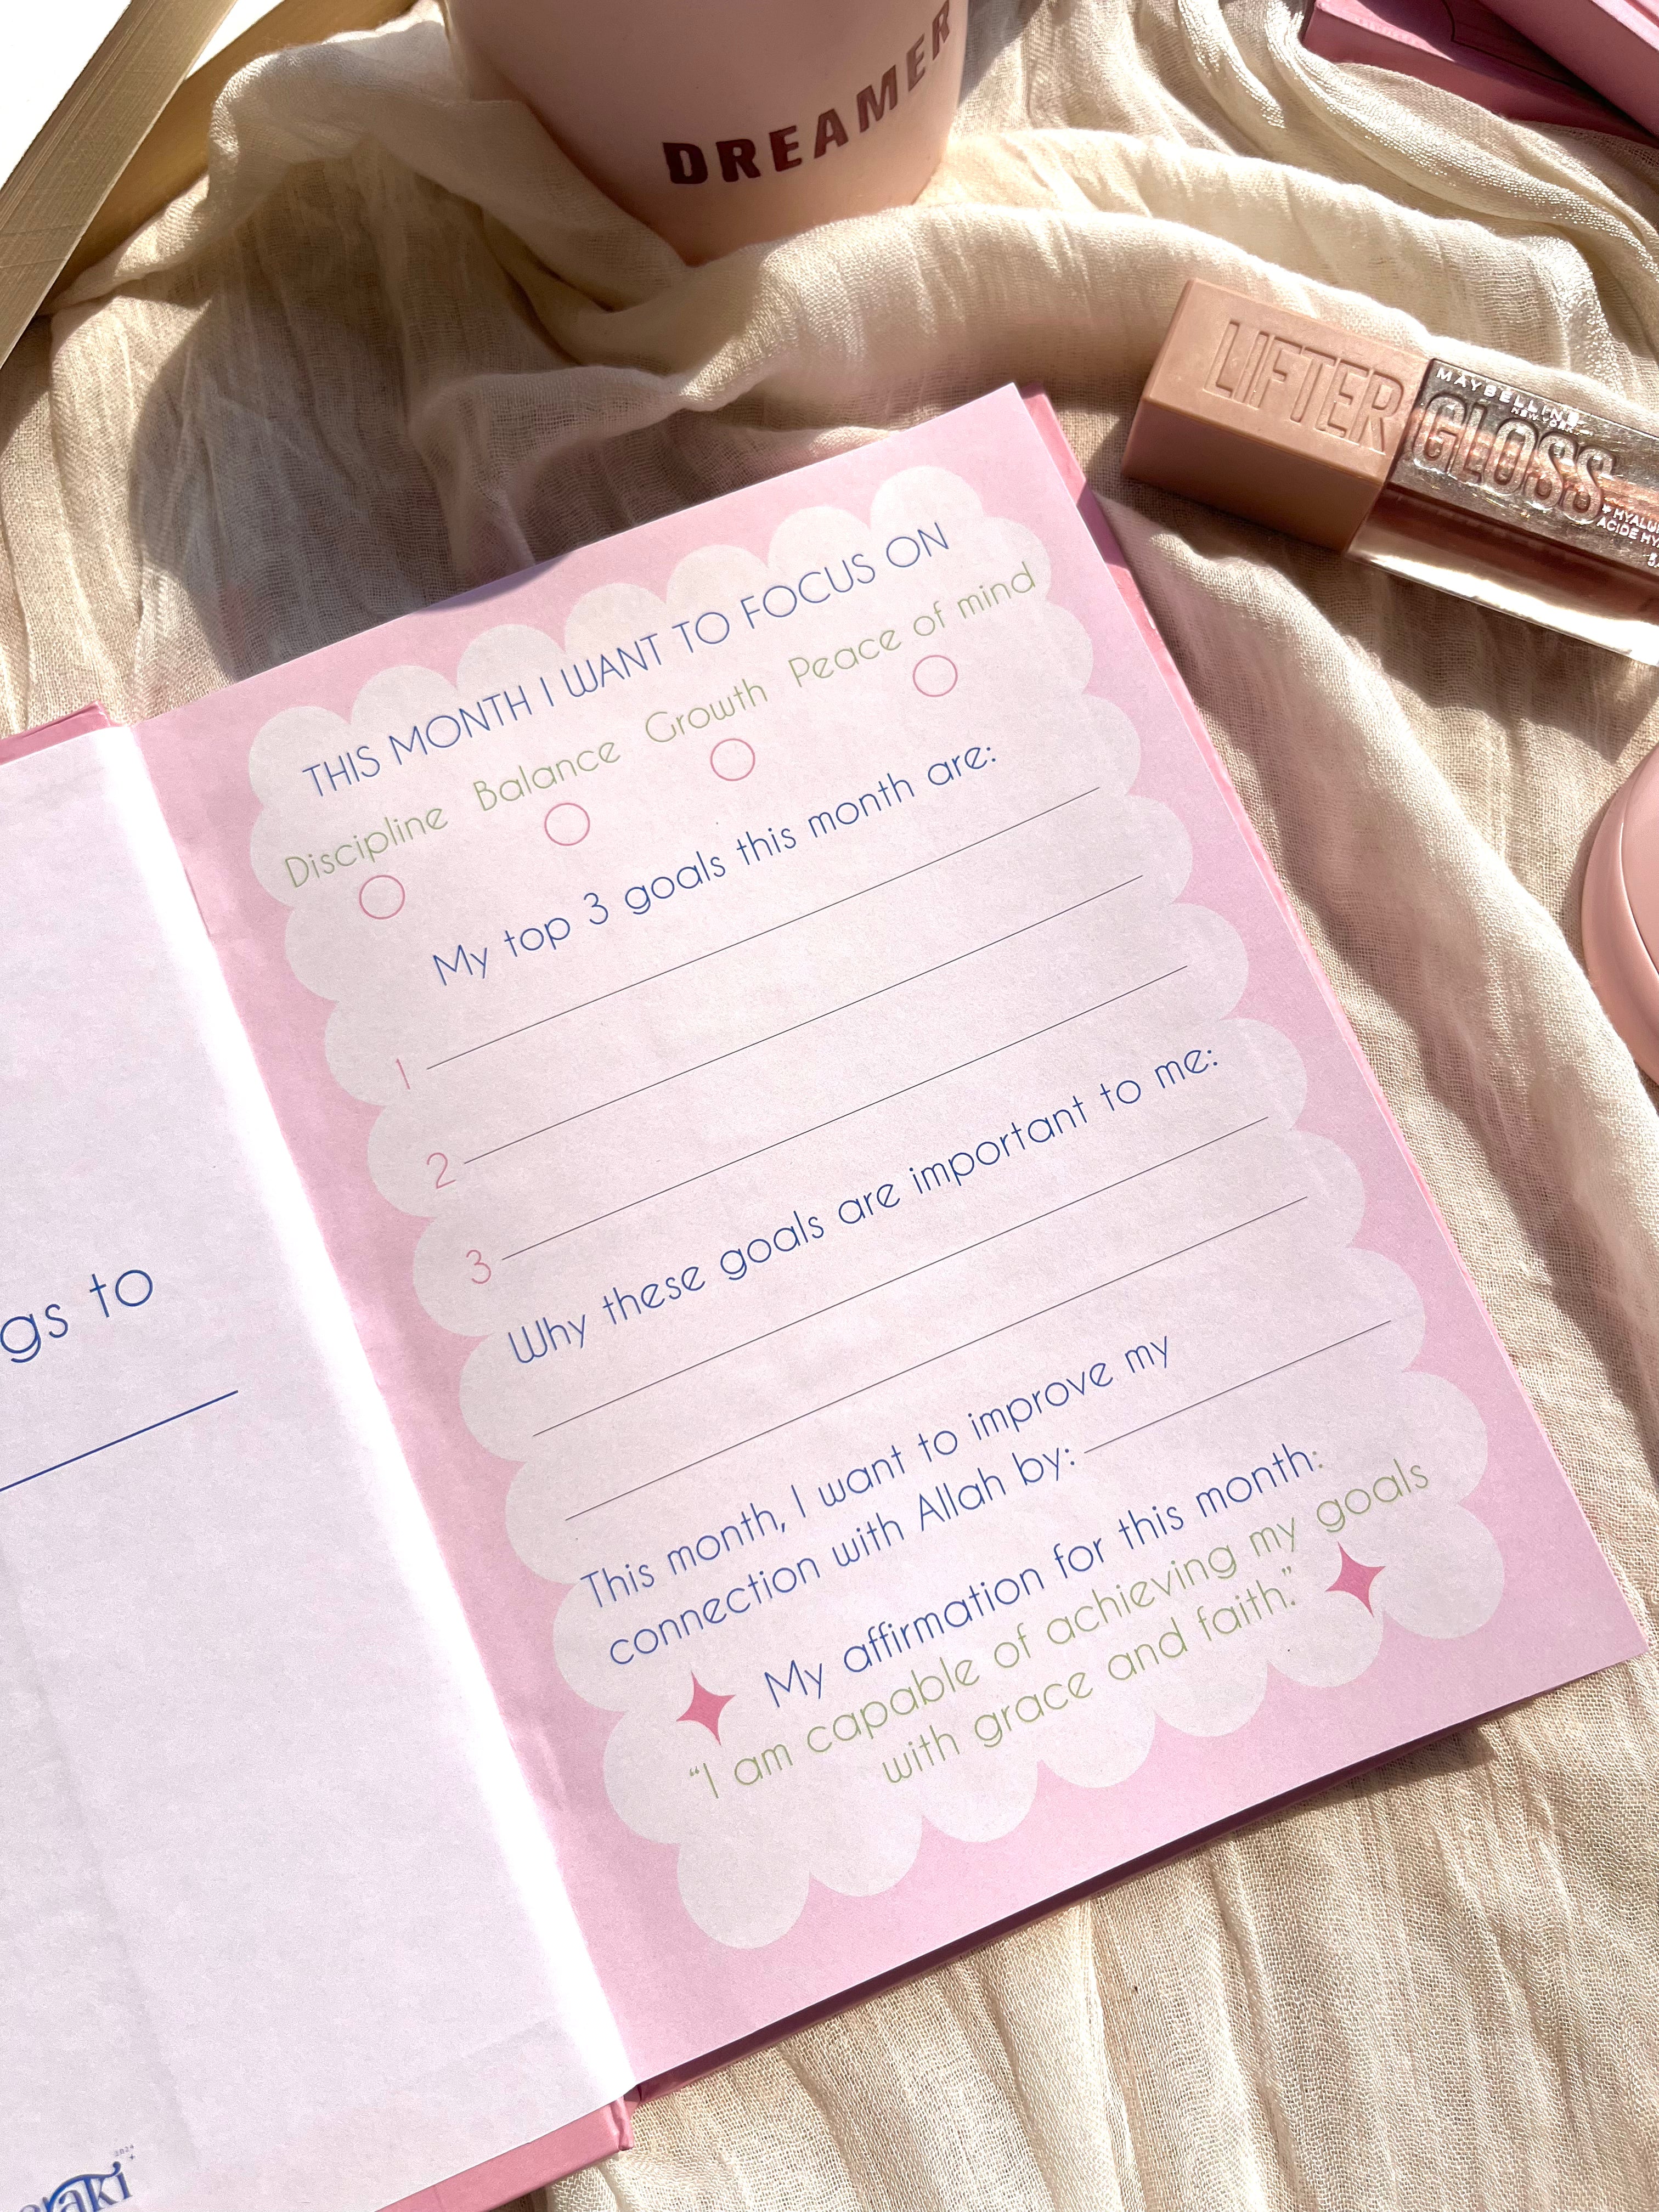 DREAMER
LIFTER
MAYBELLINE
NEW YORK
GLOSS
THIS MONTH I WANT TO FOCUS ON
Discipline Balance Growth Peace of mind
My top 3 goals this month are:
1
2
3
Why these goals are important to me:
This month, I want to improve my
connection with Allah by:
My affirmation for this month:
"I am capable of achieving my goals
with grace and faith."
gs to
2024